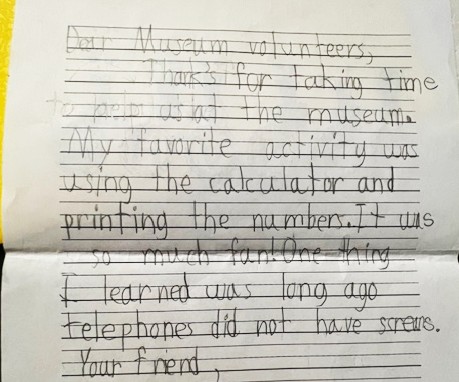 Dear Museum volunteers,
Thank's for taking time
to help us at the museum.
My favorite activity was
using the calculator and
printing the numbers. It was
so much fun! One thing
I learned was long ago
telephones did not have screens.
Your friend,